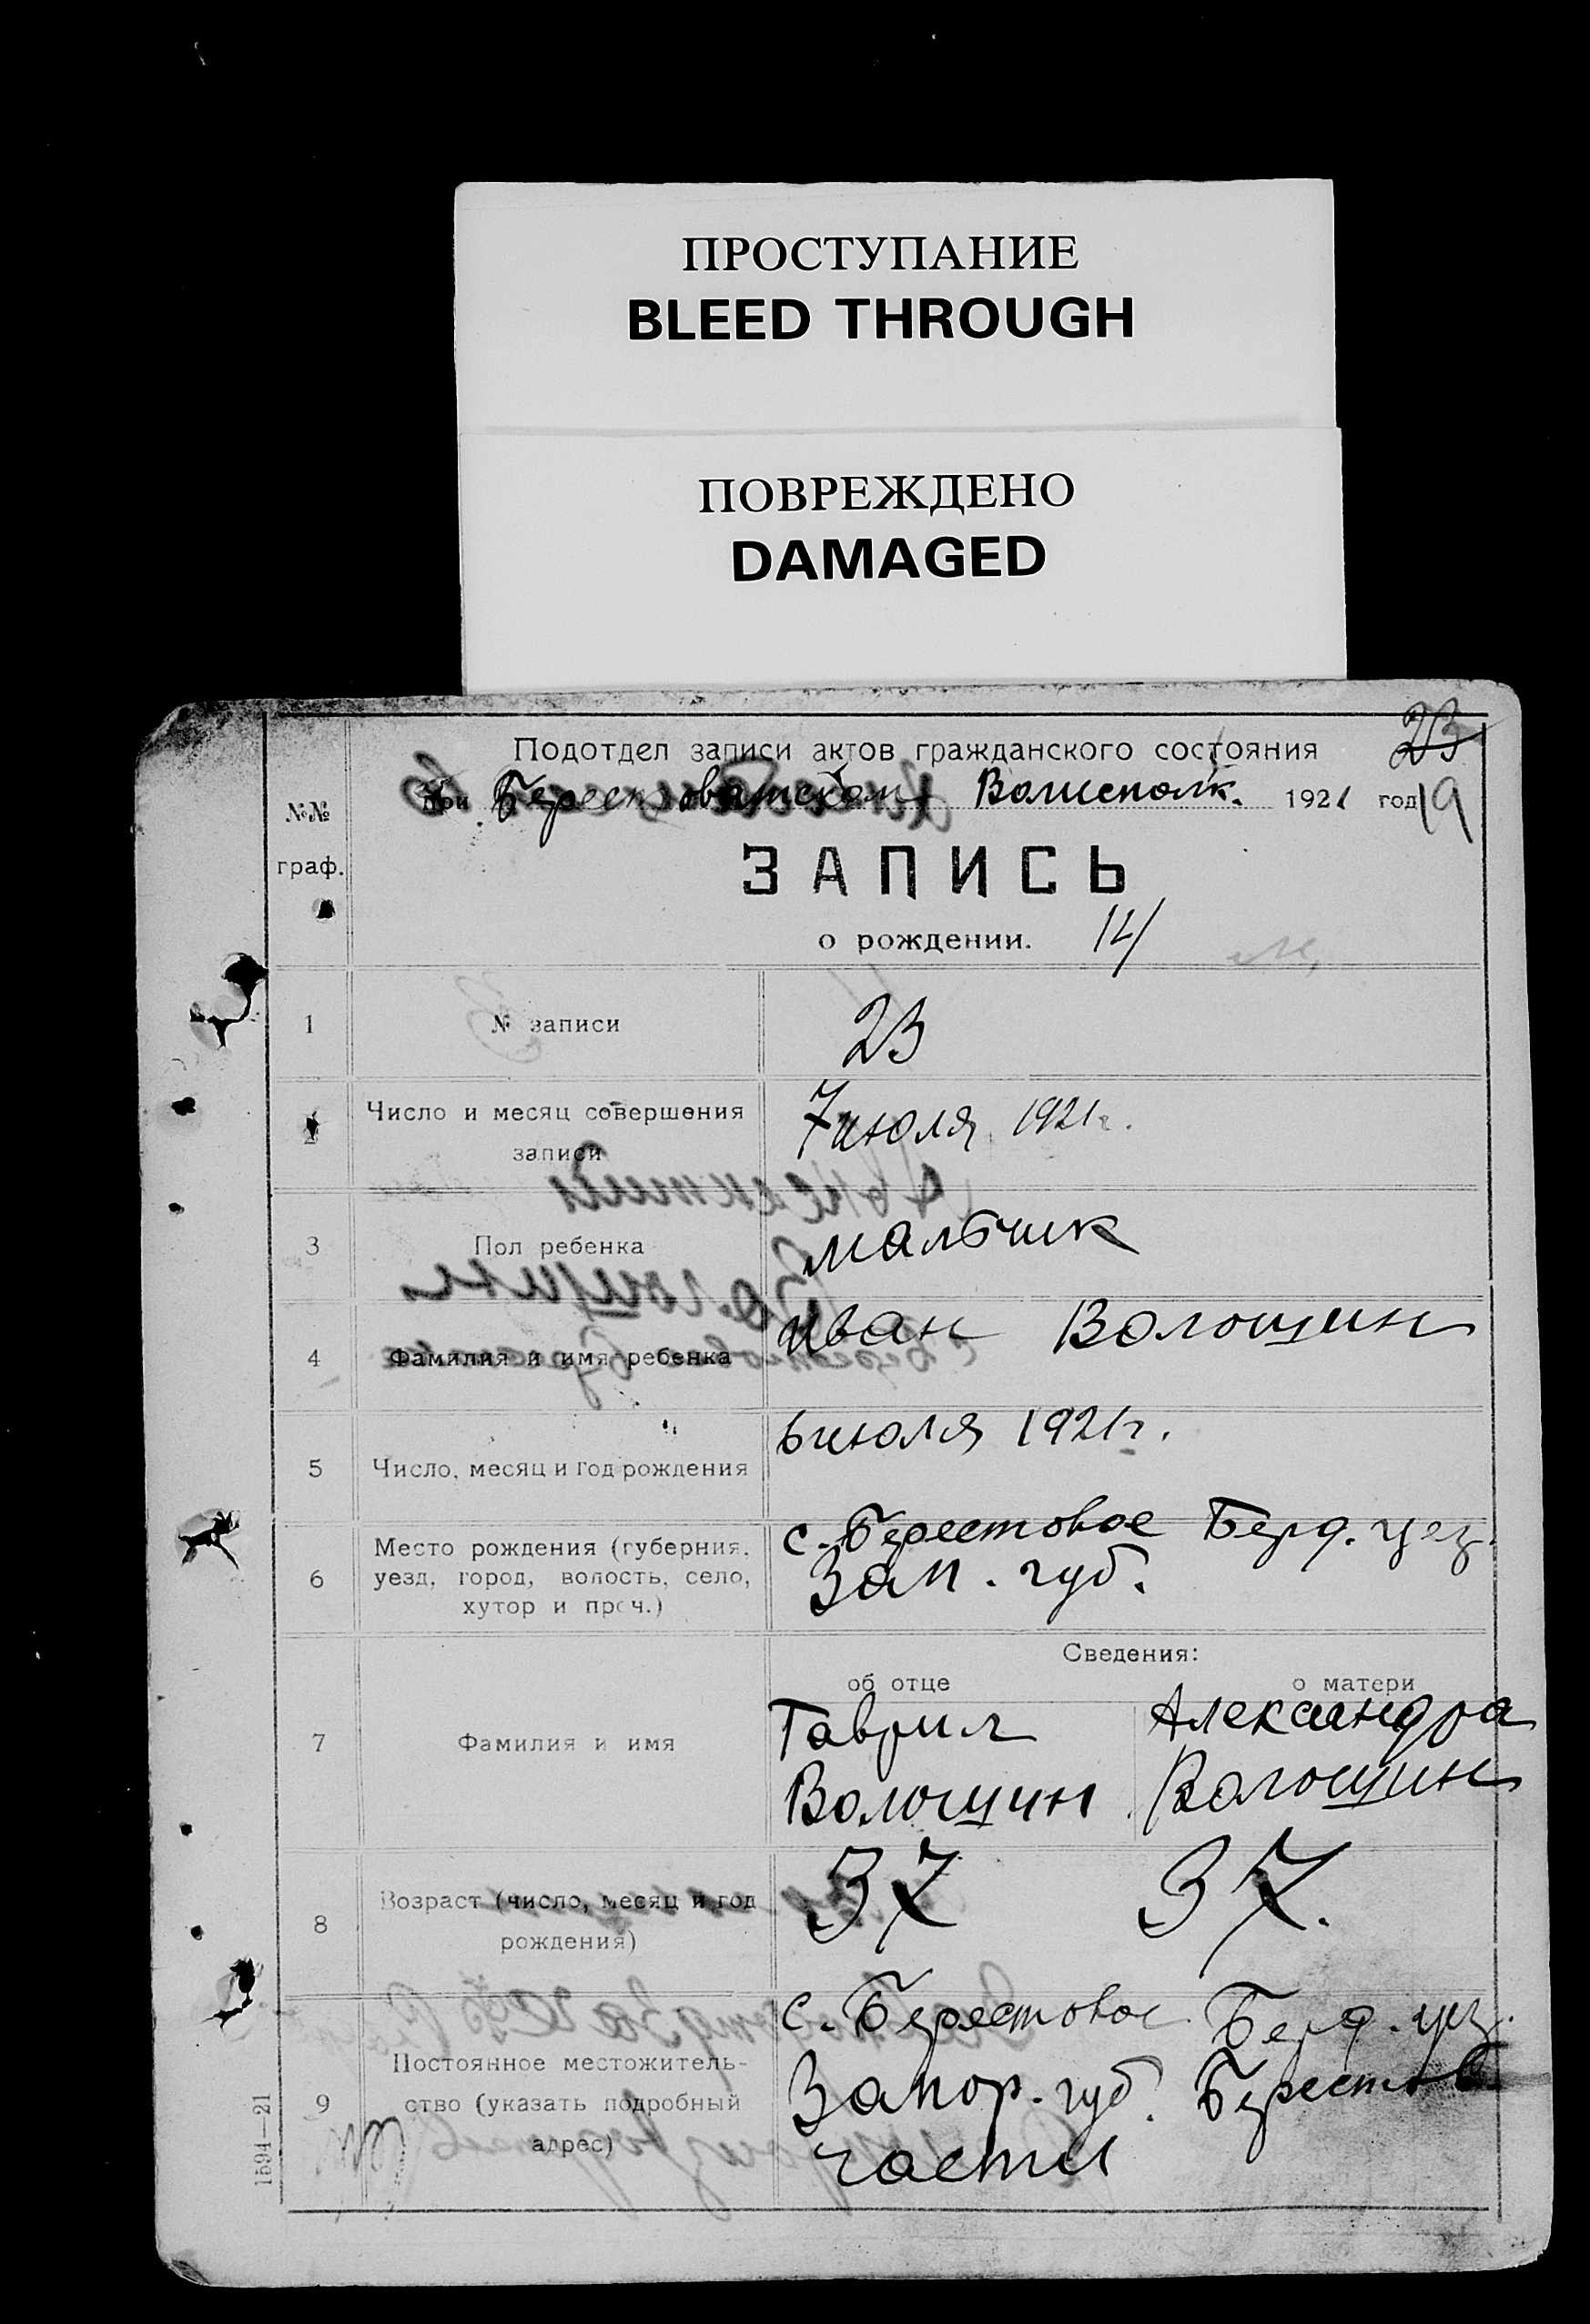 ПРОСТУПАНИЕ
BLEED THROUGH
ПОВРЕЖДЕНО
DAMAGED
23
Подотдел записи актов гражданского состояния
при Берестоватском Волисполк. 1921 год 19
№№
граф.
ЗАПИСЬ
о рождении. 14
1 № записи 23
2 Число и месяц совершения
записи
7 июля 1921 г.
3 Пол ребенка мальчик
4 Фамилия и имя ребенка Иван Волошин
5 Число, месяц и год рождения 6 июля 1921 г.
6 Место рождения (губерния,
уезд, город, волость, село,
хутор и проч.)
с. Берестовое Берд. уез.
Зап. губ.
Сведения:
об отце о матери
7 Фамилия и имя
Гаврил Александра
Волощин Волощин
8 Возраст (число, месяц и год
рождения)
37 37.
9 Постоянное местожитель-
ство (указать подробный
адрес)
с. Берестовое Берд. уез.
Запор. губ. Берестов.
части
1594—21